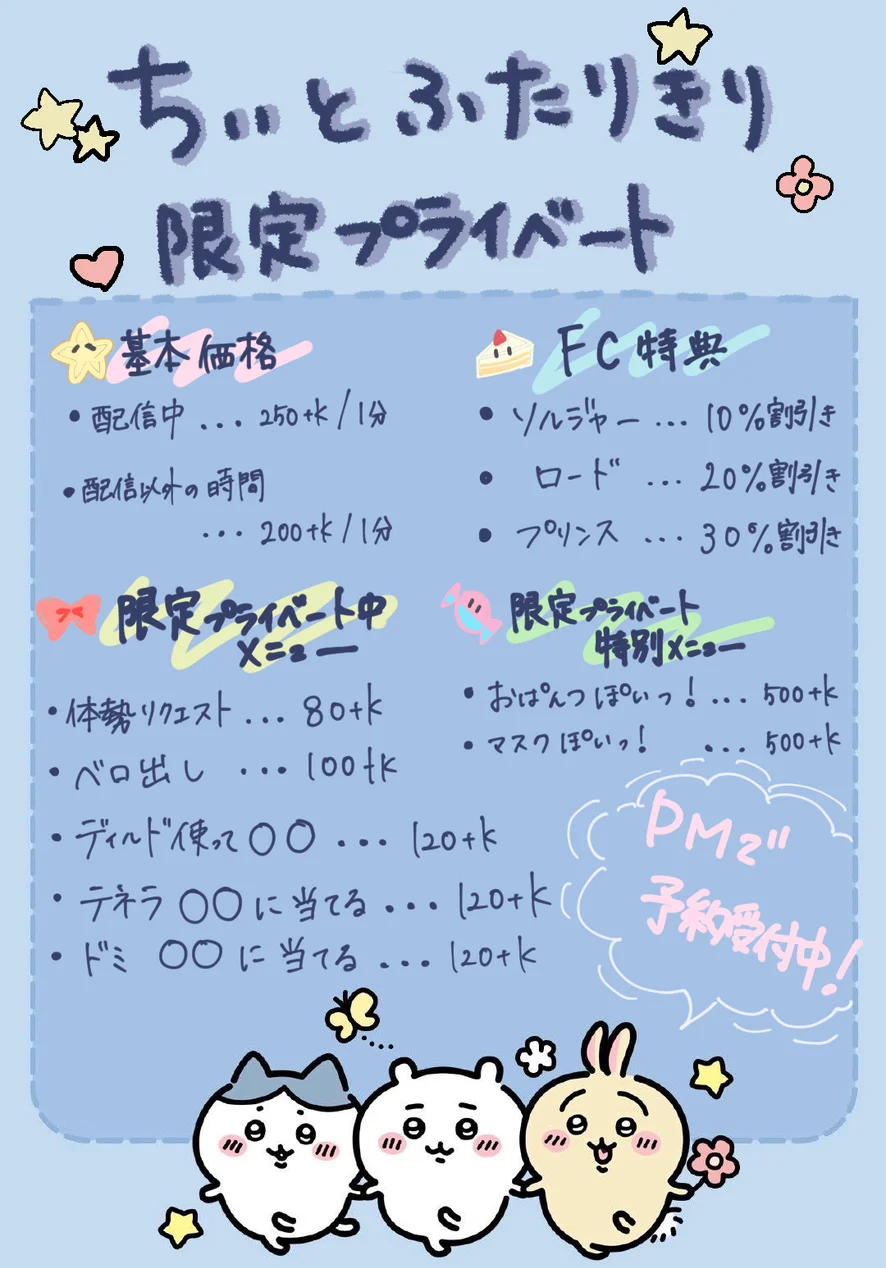 ちぃとふたりきり
限定プライベート
基本価格
・配信中 ... 250tk/1分
・配信以外の時間
... 200tk/1分
FC特典
・ソルジャー ... 10%割引き
・ロード ... 20%割引き
・プリンス ... 30%割引き
限定プライベート中
メニュー
・体勢リクエスト ... 80tk
・ベロ出し ... 100tk
・ディルド使って〇〇 ... 120tk
・テネラ〇〇に当てる ... 120tk
・ドミ 〇〇に当てる ... 120tk
限定プライベート
特別メニュー
・おぱんつぽいっ! ... 500tk
・マスクぽいっ! ... 500tk
PMで
予約受付中!